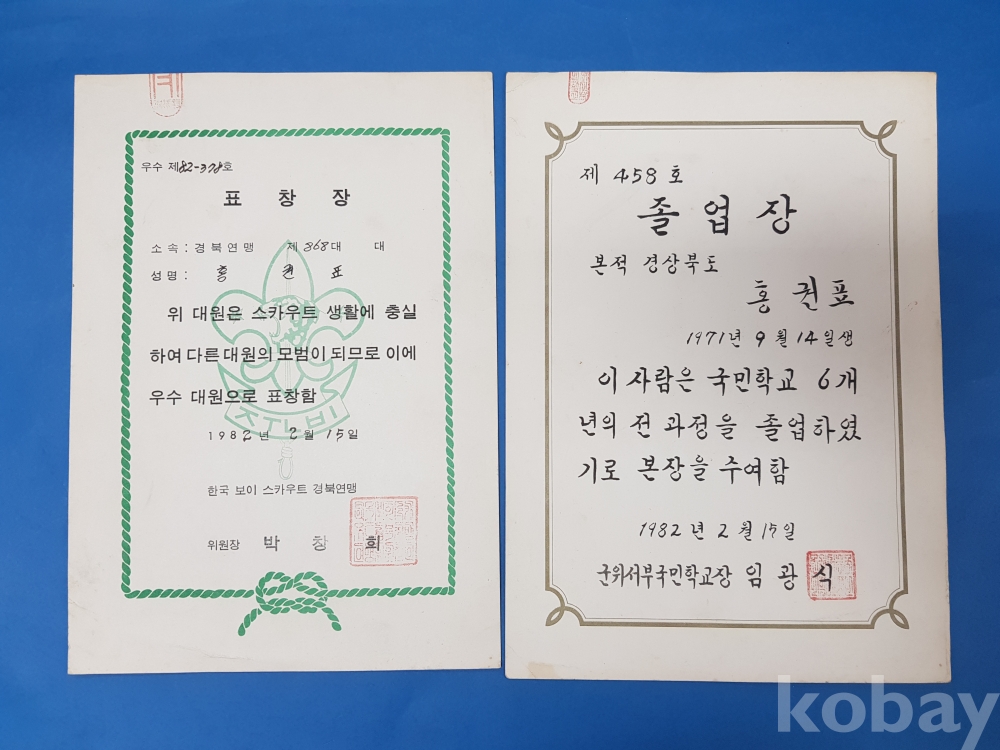 우수 제82-378호
표 창 장
소 속 : 경 북 연 맹 제 868 대 대
성 명 : 홍 권 표
위 대원은 스카우트 생활에 충실
하여 다른 대원의 모범이 되므로 이에
우수 대원으로 표창함
준비
1982 년 2 월 15 일
한국 보이 스카우트 경북연맹
위원장 박 창 희
제 458 호
졸업장
본적 경상북도
홍 권 표
1971년 9 월 14 일생
이 사람은 국민학교 6개
년의 전 과정을 졸업하였
기로 본장을 수여함
1982 년 2 월 15 일
군위서부국민학교장 임 광 식
kobay